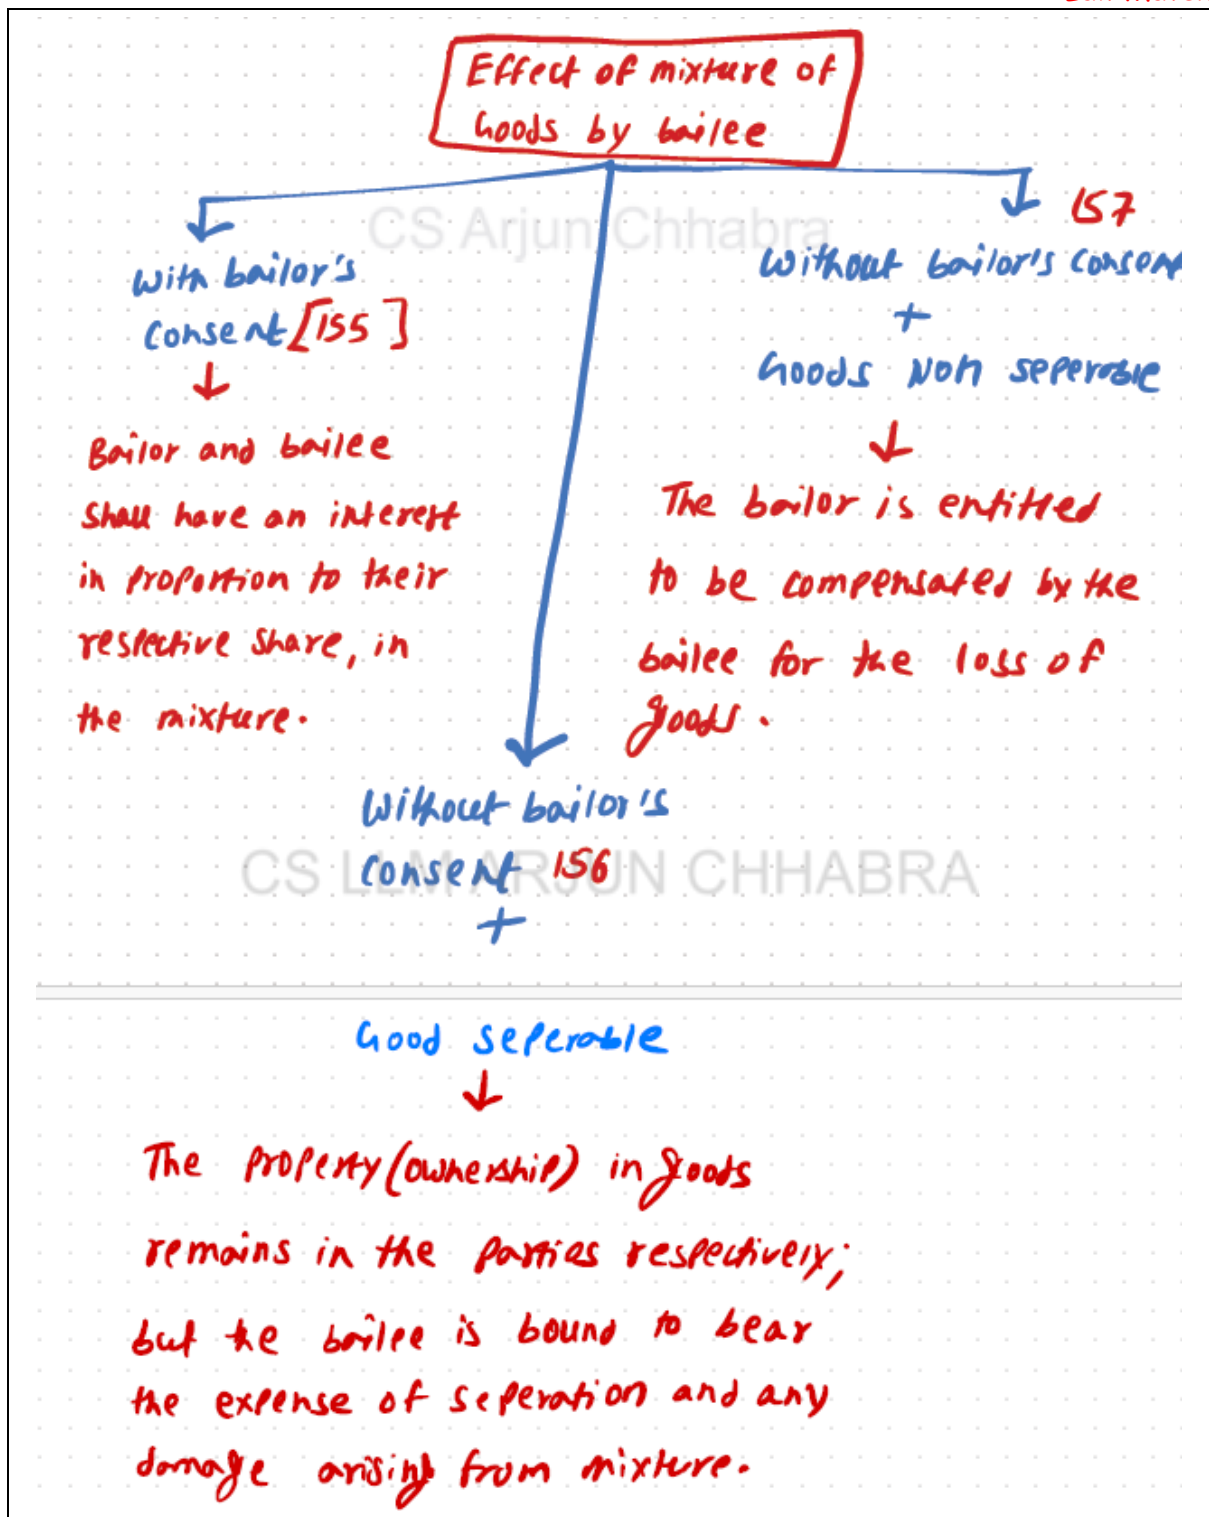 Effect of mixture of
Goods by bailee
CS Arjun Chhabra
With bailor's
Consent [155]
Bailor and bailee
shall have an interest
in proportion to their
respective share, in
the mixture.
157
Without bailor's consent
+
Goods Non seperable
The bailor is entitled
to be compensated by the
bailee for the loss of
goods.
Without bailor's
consent 156
+
CS LLM ARJUN CHHABRA
Good seperable
The property (ownership) in goods
remains in the parties respectively;
but the bailee is bound to bear
the expense of seperation and any
damage arising from mixture.